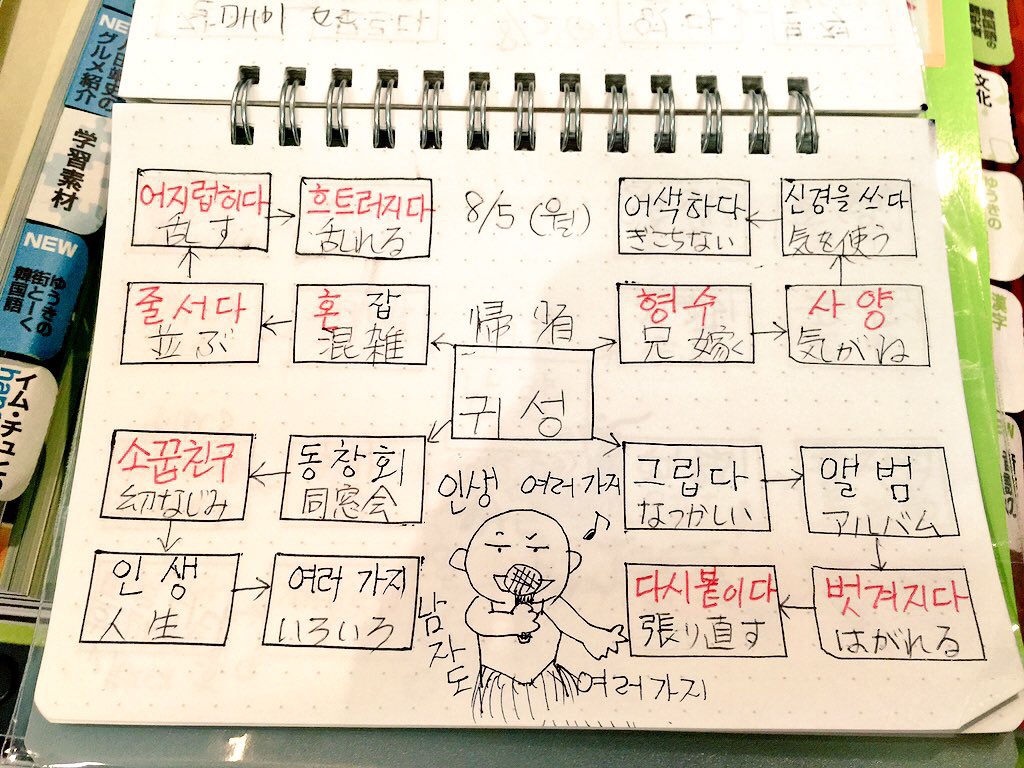 NEW
グルメ紹介
学習素材
NEW
ゆうきの
街とーく
韓国語
イム・チュ
文化
漢字
8/5 (월)
어지럽히다
乱す
흐트러지다
乱れる
어색하다
ぎこちない
신경을 쓰다
気を使う
줄서다
並ぶ
혼잡
混雑
帰省
귀성
형수
兄嫁
사양
気がね
소꿉친구
幼なじみ
동창회
同窓会
인생 여러가지
그립다
なつかしい
앨범
アルバム
인생
人生
여러가지
いろいろ
남자도
여러가지
다시붙이다
張り直す
벗겨지다
はがれる